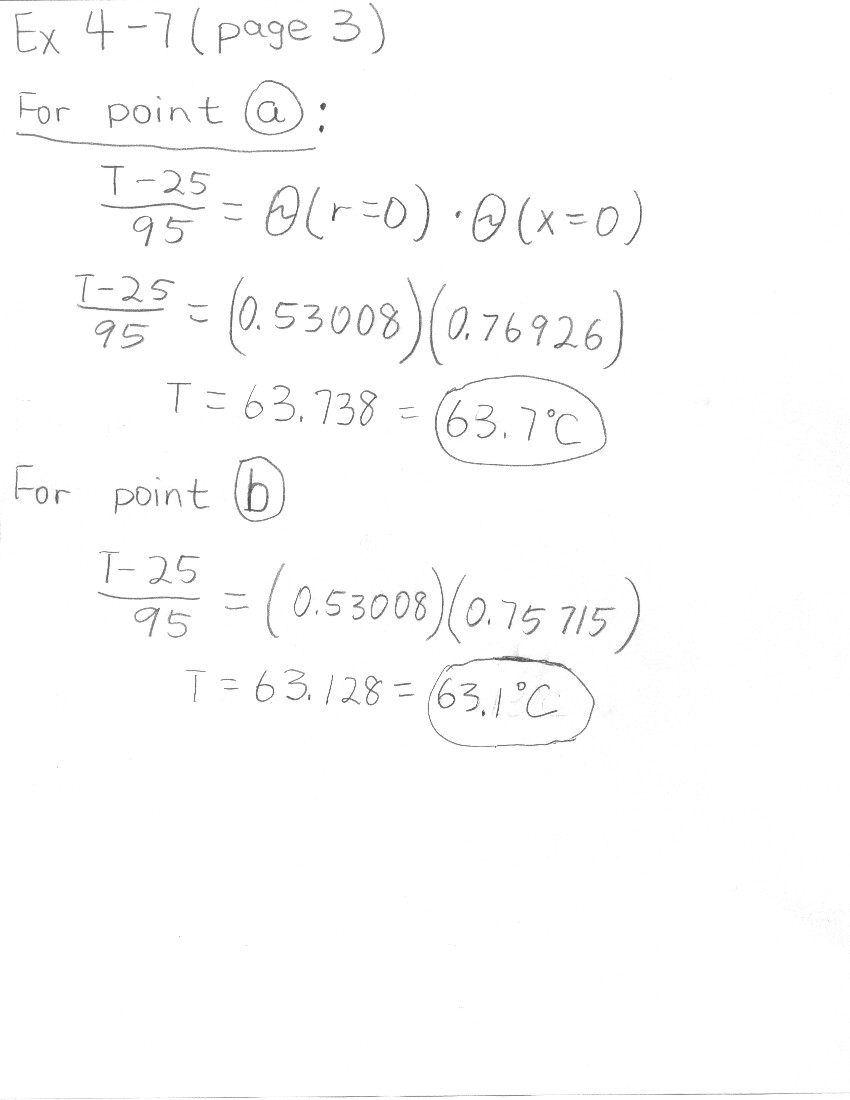 Ex 4-7 (page 3)
For point ⓐ:
T-25/95 = Θ(r=0) · Θ(x=0)
T-25/95 = (0.53008)(0.76926)
T = 63.738 = 63.7°C
For point ⓑ
T-25/95 = (0.53008)(0.75715)
T = 63.128 = 63.1°C